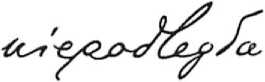 niepodległa